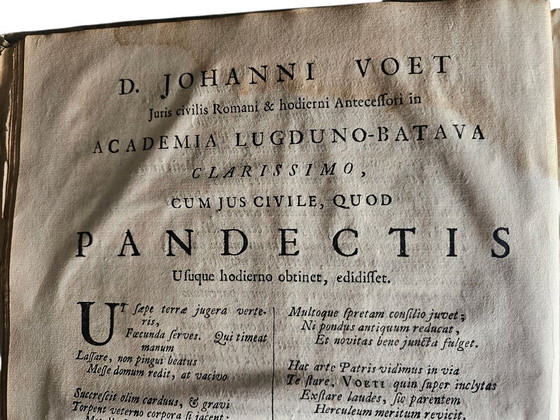 D. JOHANNI VOET
Juris civilis Romani & hodierni Antecessori in
ACADEMIA LUGDUNO-BATAVA
CLARISSIMO,
CUM JUS CIVILE, QUOD
PANDECTIS
Usuque hodierno obtinet, edidisset.
UT sæpe terræ jugera verte-
ris,
Fœcunda serves. Qui timeat
manum
Lassare, non pingui beatus
Messe domum redit, at vacivo
Succrescit olim carduus, & gravi
Torpent veterno corpora si jacent:
Multoque spretam consilio juvet;
Ni pondus antiquum reducat,
Et novitas bene juncta fulget.
Hac arte Patris vidimus in via
Te stare, VOETI quin super inclytas
Exstare laudes, sic parentem
Herculeum meritum revicit.